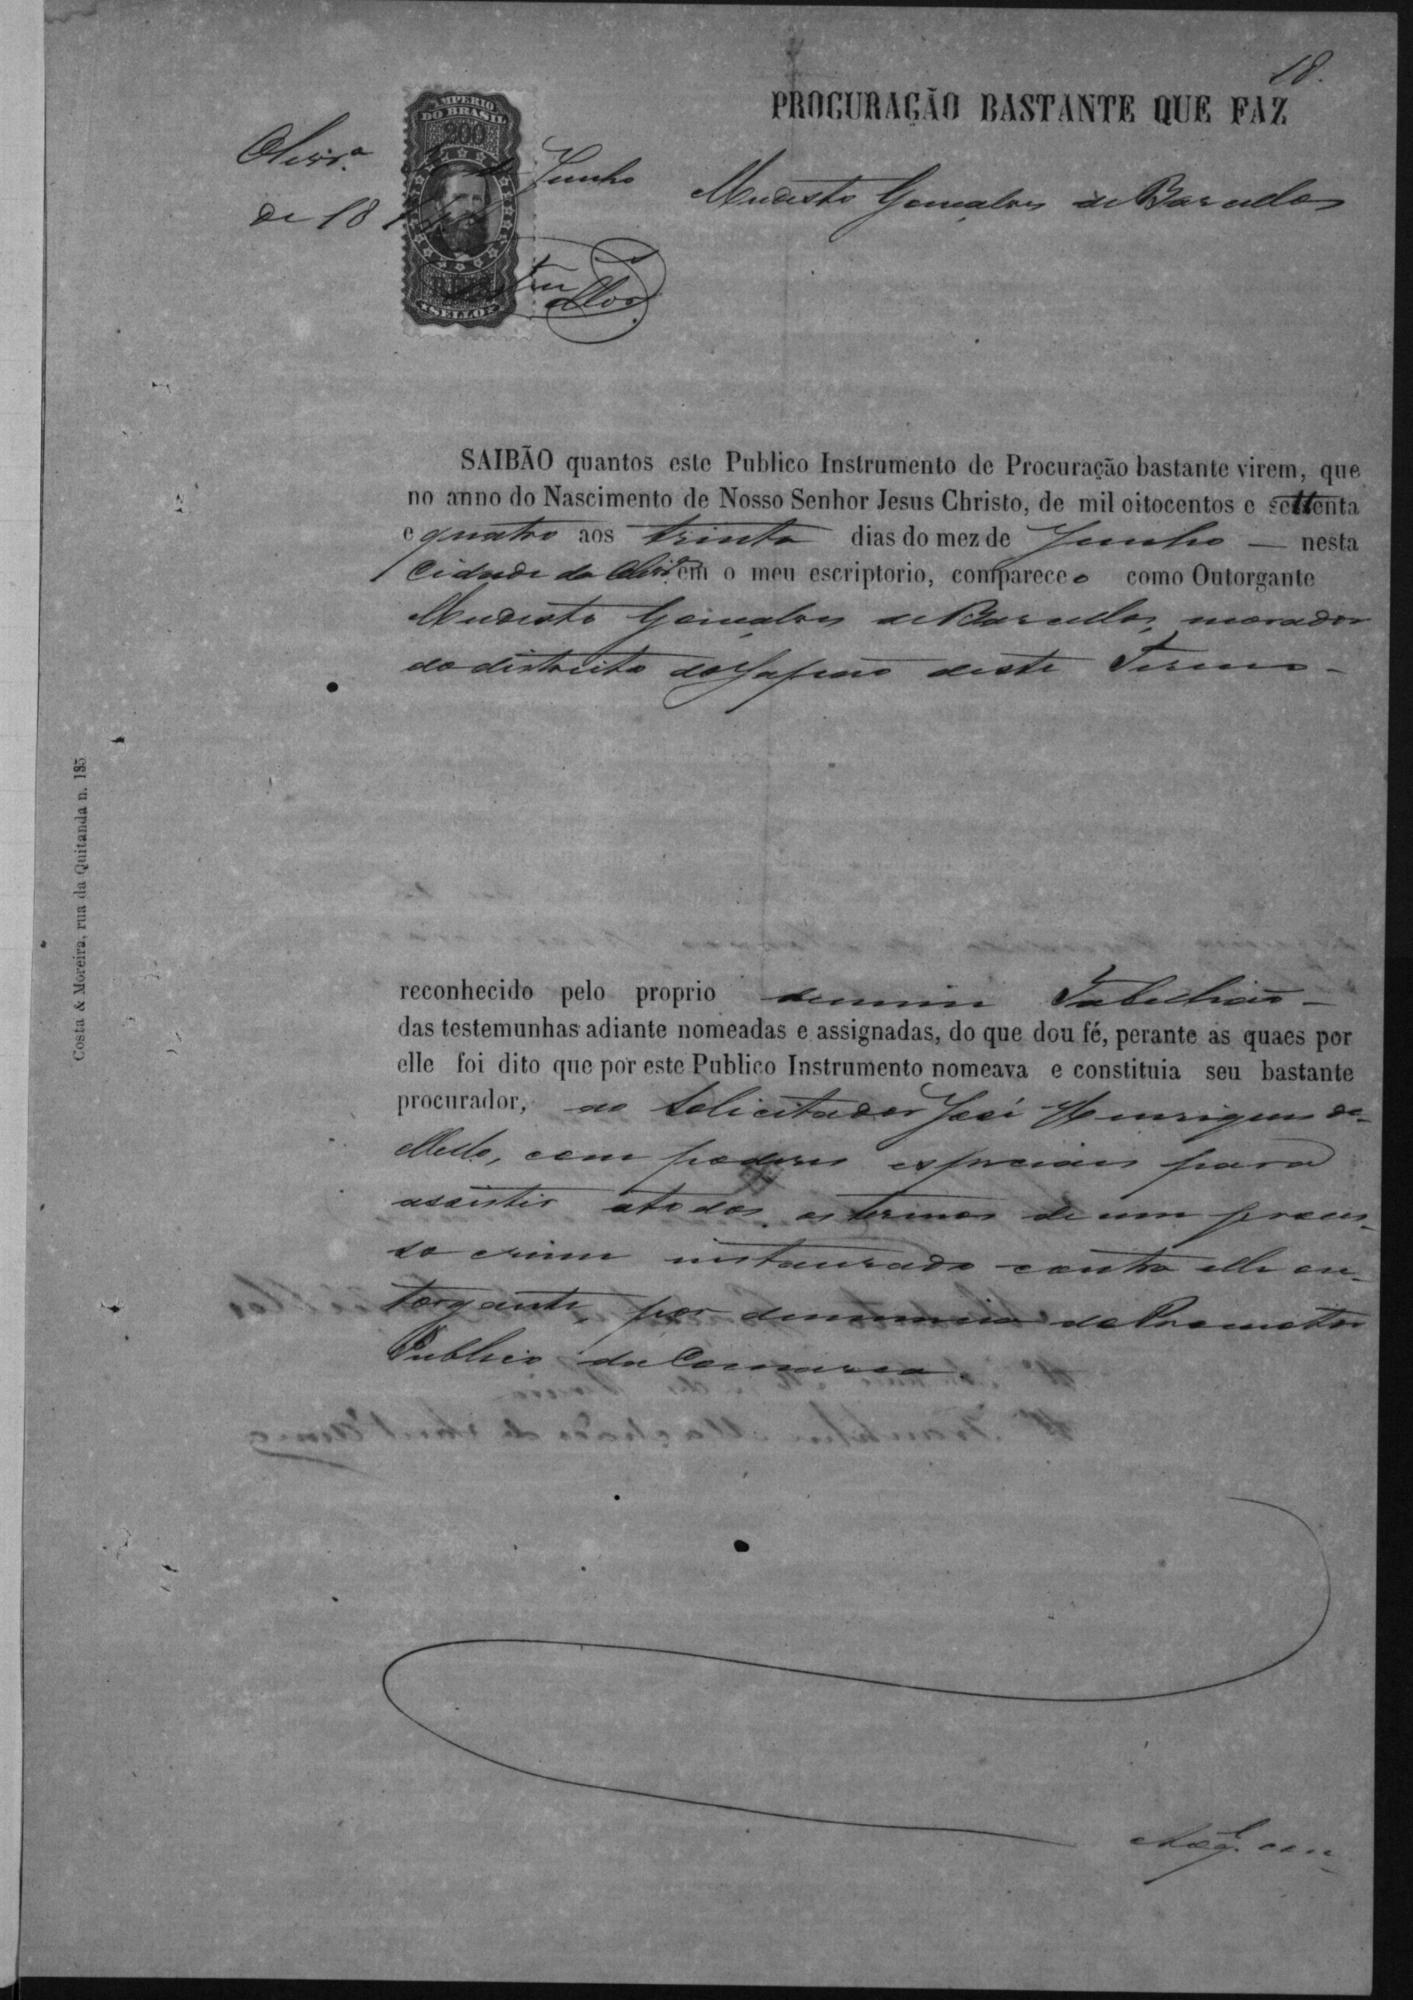 18.
PROCURAÇÃO BASTANTE QUE FAZ
IMPERIO
DO BRASIL
200
SELLO
Olivrª de Junho
de 18
Modesto Gonçalves de Barcellos
SAIBÃO quantos este Publico Instrumento de Procuração bastante virem, que
no anno do Nascimento de Nosso Senhor Jesus Christo, de mil oitocentos e settenta
e quatro aos trinta dias do mez de Junho — nesta
Cidade da Olivrª em o meu escriptorio, compareceo como Outorgante
Modesto Gonçalves de Barcellos, morador
do districto do Japão deste Termo —
reconhecido pelo proprio de mim Tabelião —
das testemunhas adiante nomeadas e assignadas, do que dou fé, perante as quaes por
elle foi dito que por este Publico Instrumento nomeava e constituia seu bastante
procurador, ao Solicitador José Henriques de
Mello, com poderes especiaes para
assistir a todos os termos de um proces-
so crime instaurado contra elle ou-
torgante, por denuncia do Promotor
Publico da Comarca
Costa & Moreira, rua da Quitanda n. 135